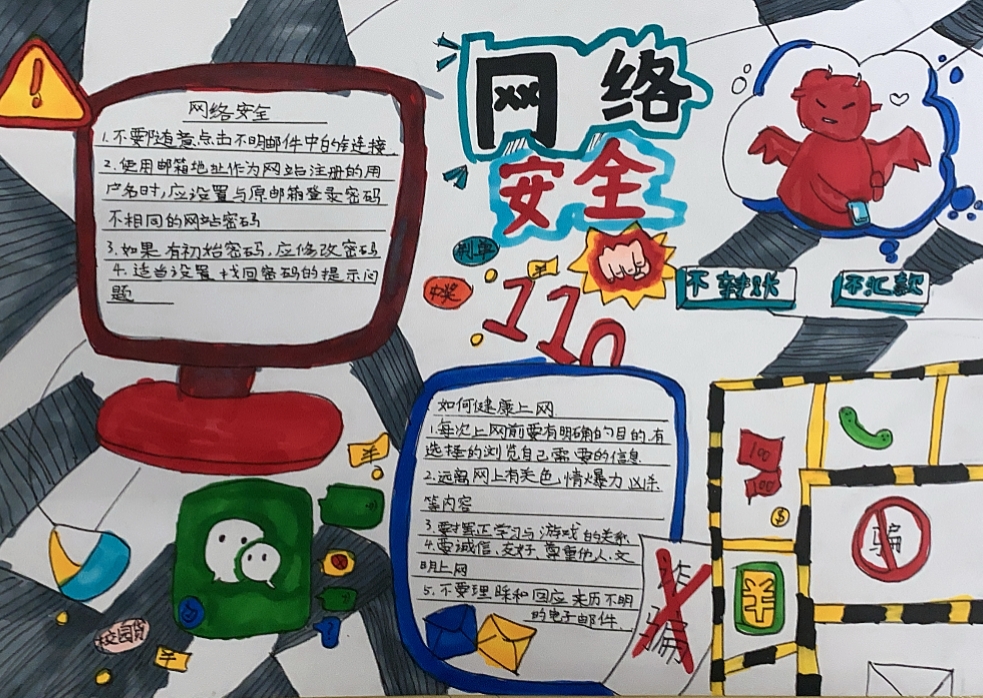 网络
安全
网络安全
1.不要随意点击不明邮件中的链接
2.使用邮箱地址作为网站注册的用
户名时,应设置与原邮箱登录密码
不相同的网站密码
3.如果有初始密码,应修改密码
4.适当设置找回密码的提示问
题
刷单
中奖
110
不转账
不汇款
如何健康上网
1.每次上网前要有明确的目的,有
选择的浏览自己需要的信息
2.远离网上有关色情爆力凶杀
等内容
3.要摆正学习与游戏的关系
4.要诚信、友好、尊重他人、文
明上网
5.不要理睬和回应来历不明
的电子邮件
诈
骗
100
100
骗
¥
$
校园贷